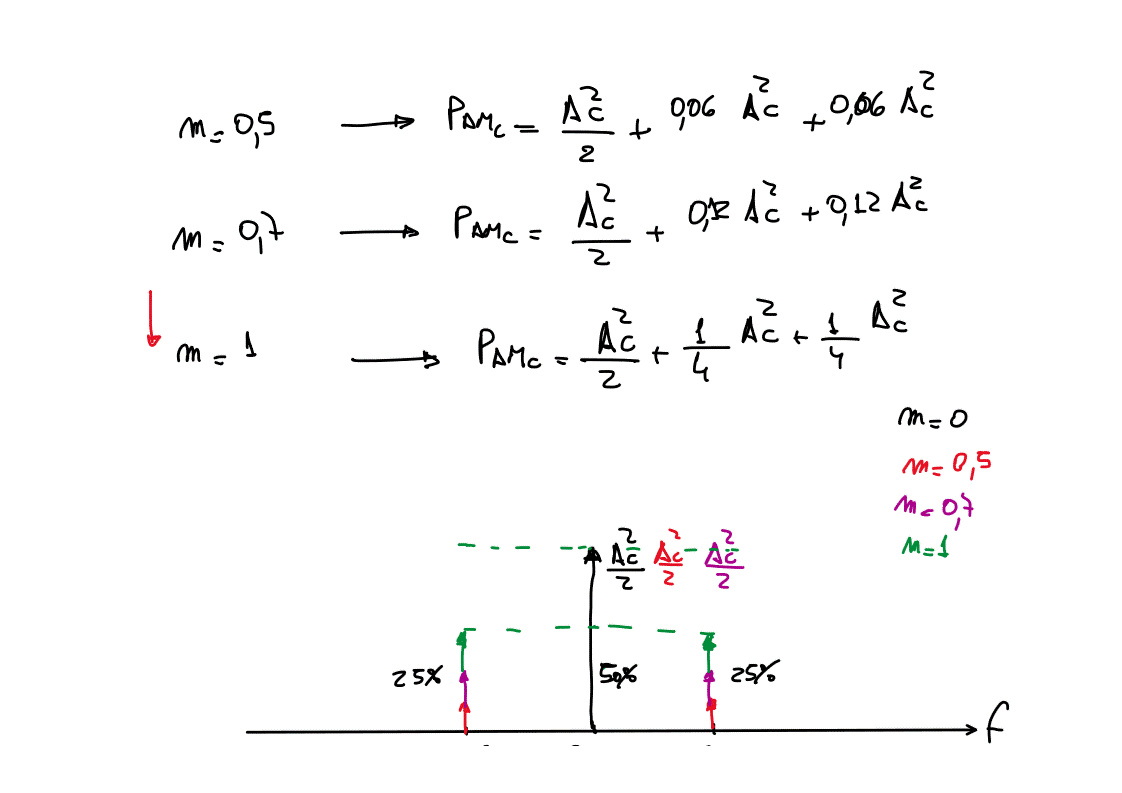 m=0,5 → P_AMc = Ac²/2 + 0,06 Ac² + 0,06 Ac²
m=0,7 → P_AMc = Ac²/2 + 0,12 Ac² + 0,12 Ac²
m=1 → P_AMc = Ac²/2 + 1/4 Ac² + 1/4 Ac²
m=0
m=0,5
m=0,7
m=1
Ac²/2 Ac²/2 Ac²/2
25% 50% 25%
f